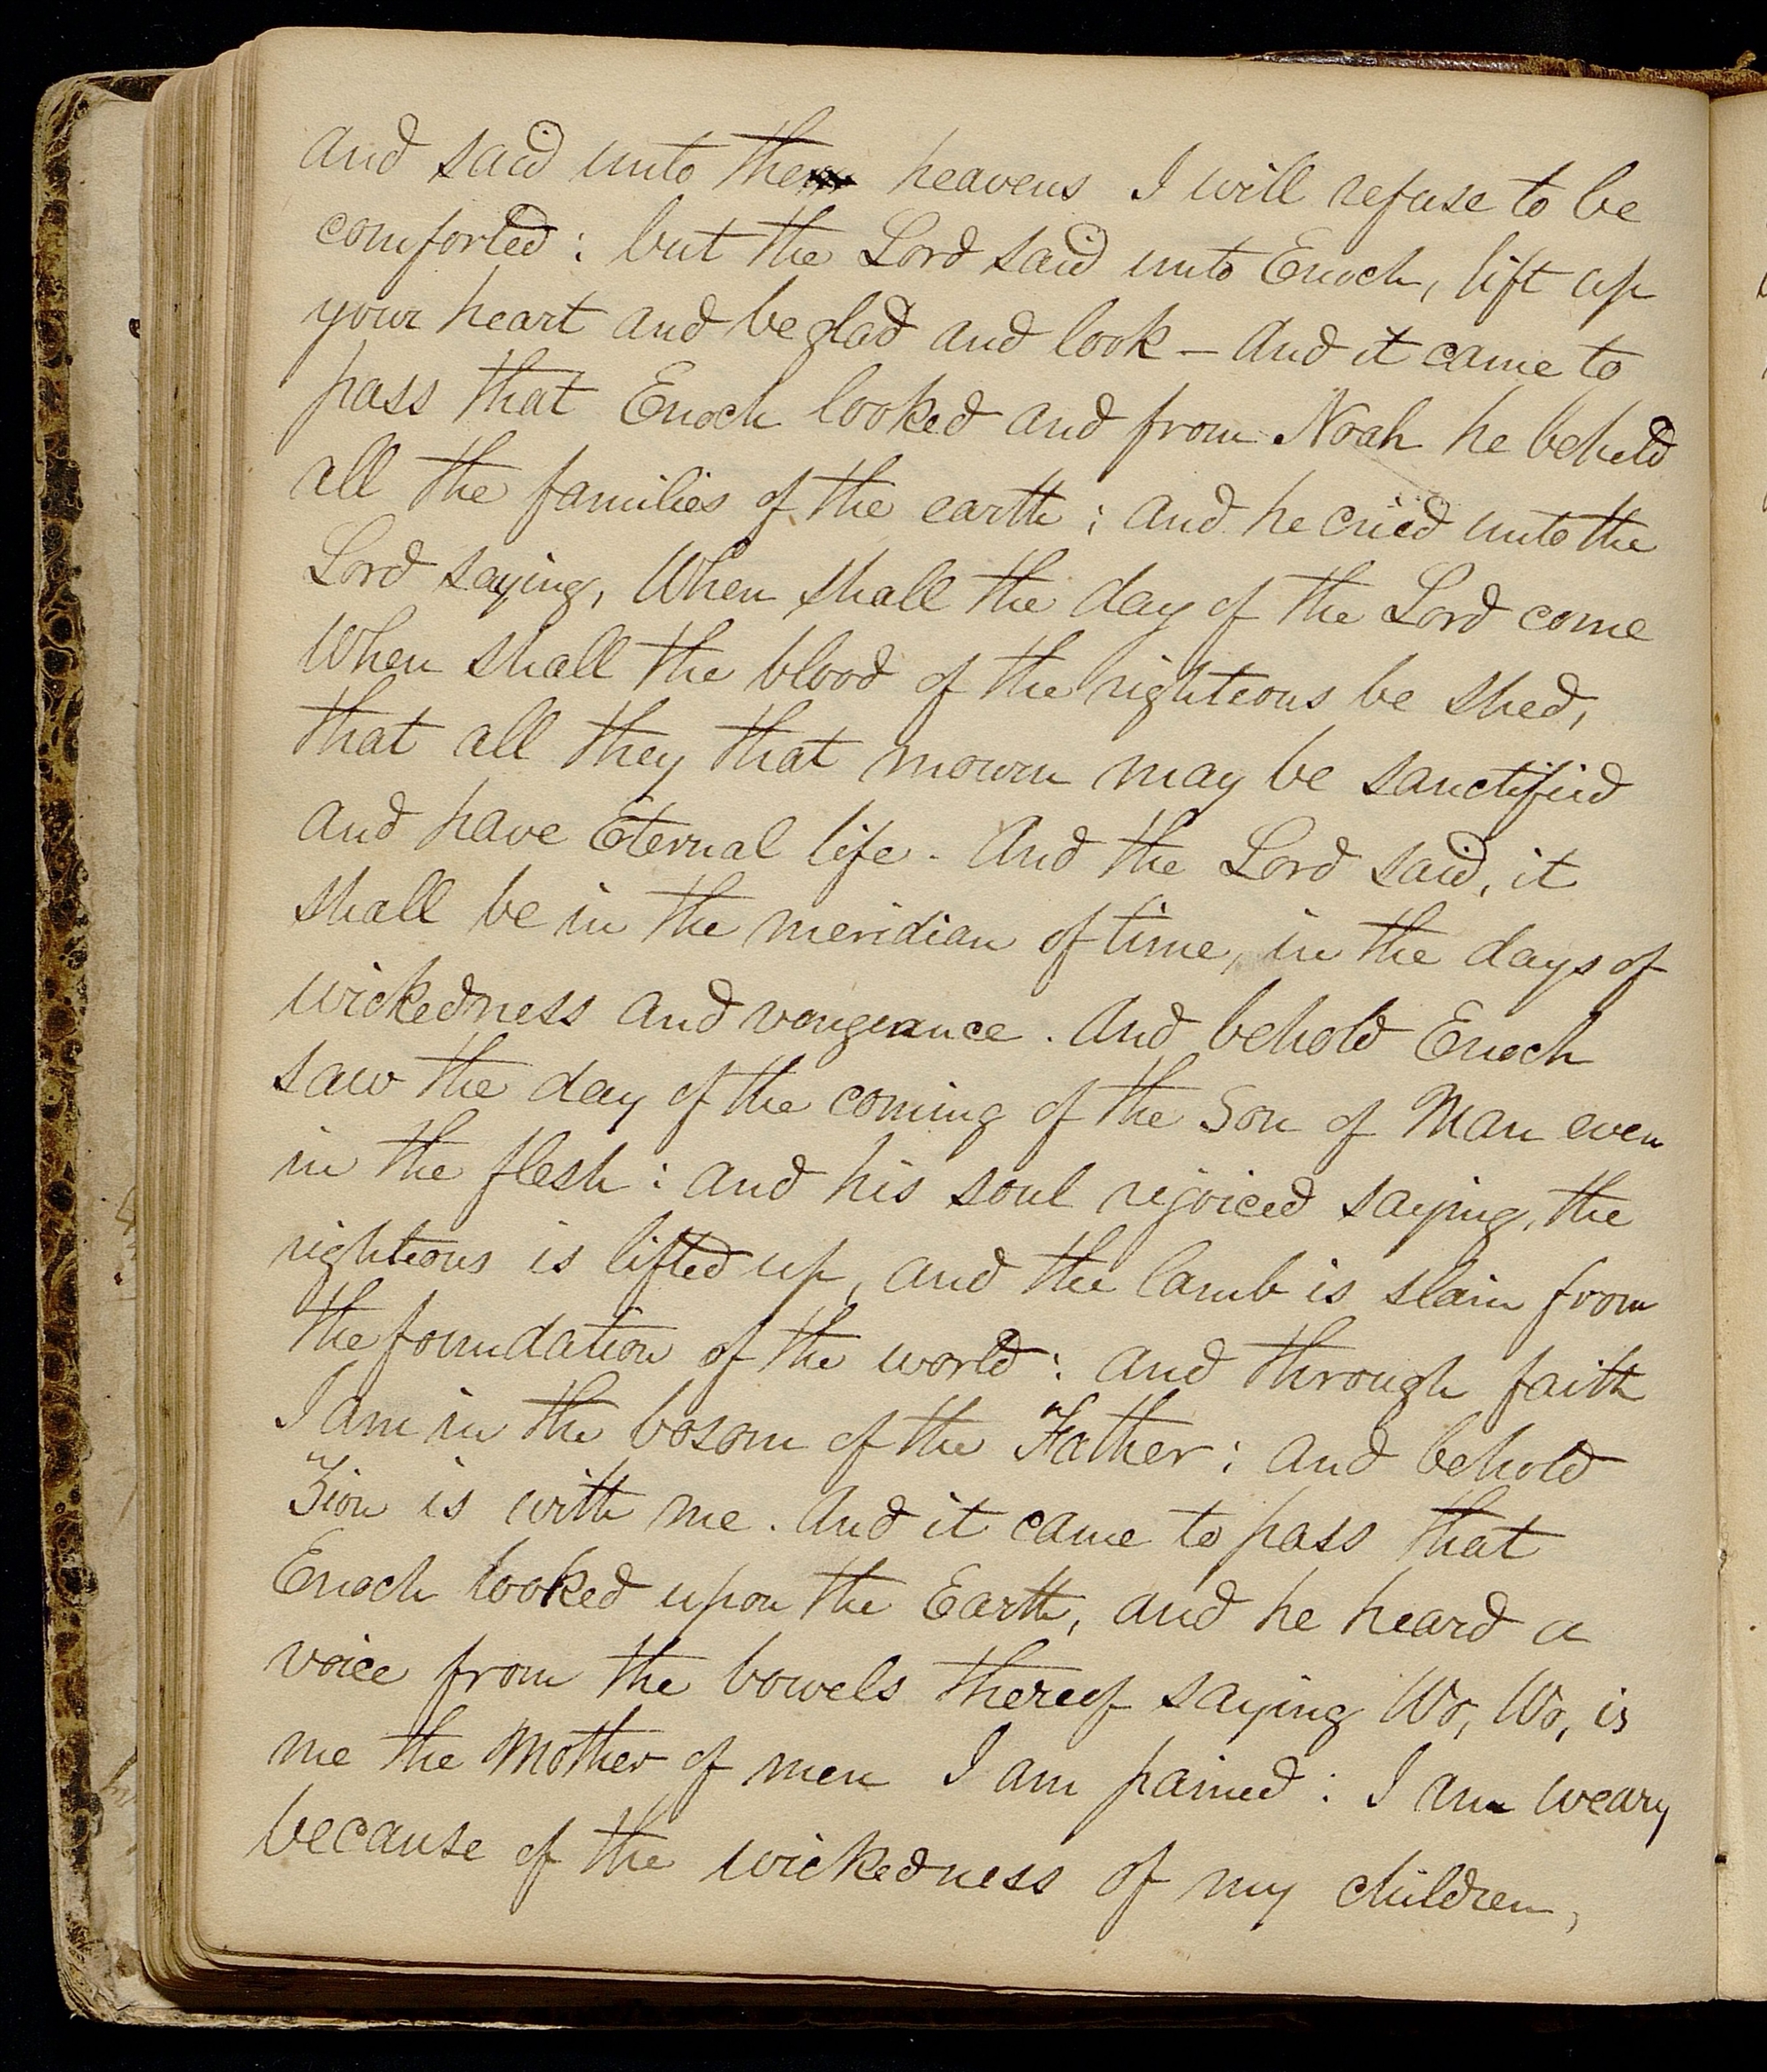 and said unto the heavens I will refuse to be
comforted : but the Lord said unto Enoch, lift up
your heart and be glad and look — And it came to
pass that Enoch looked and from Noah he beheld
all the families of the earth ; and he cried unto the
Lord saying, When shall the day of the Lord come
When shall the blood of the righteous be shed,
that all they that mourn may be sanctified
and have Eternal life. And the Lord said, it
shall be in the meridian of time, in the days of
wickedness and vengeance. And behold Enoch
saw the day of the coming of the Son of Man even
in the flesh : and his soul rejoiced saying, the
righteous is lifted up, and the lamb is slain from
the foundation of the world : and through faith
I am in the bosom of the Father ; and behold
Zion is with me. And it came to pass that
Enoch looked upon the Earth, and he heard a
voice from the bowels thereof saying Wo, Wo, is
me the Mother of men I am pained : I am weary
because of the wickedness of my children,